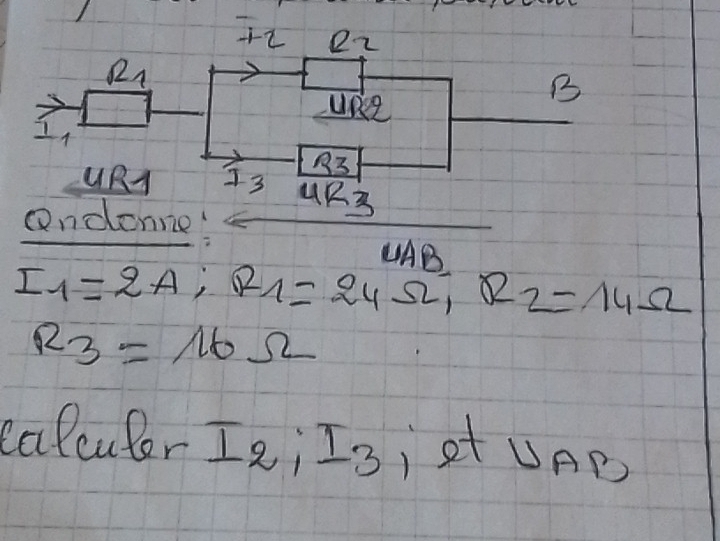 I2 R2
R1 B
UR2
I1 R3
UR1 I3 UR3
On donne:
UAB
I1 = 2A ; R1 = 24 Ω, R2 = 14 Ω
R3 = 16 Ω
calculer I2 ; I3 ; et UAB